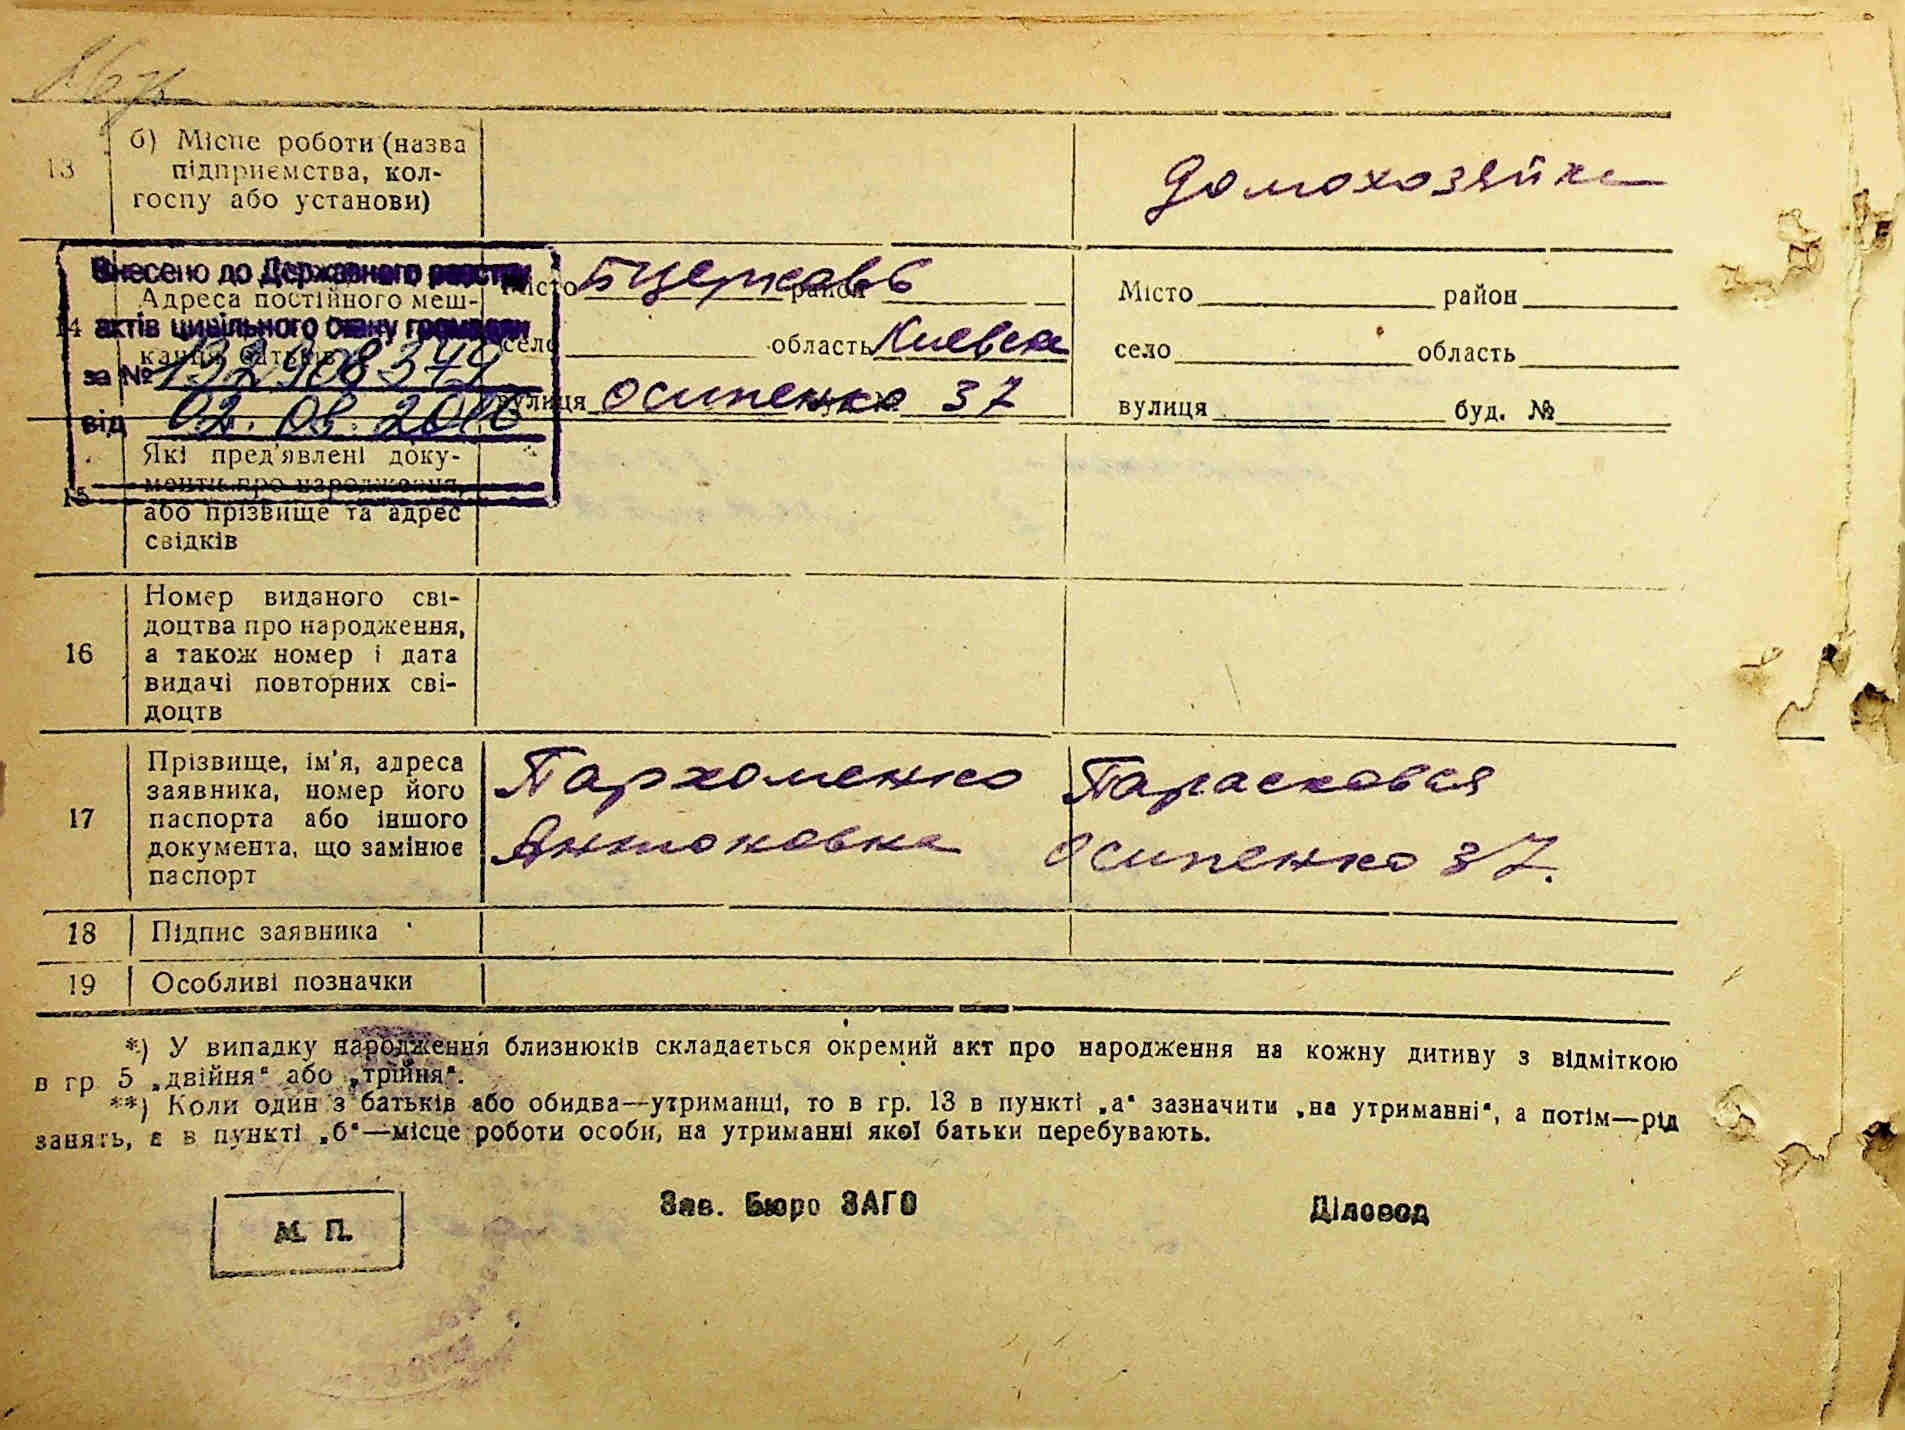 13 б) Місце роботи (назва
підприємства, кол-
госпу або установи)
домохозяйка
Внесено до Державного реєстру
актів цивільного стану громадян
за №
від 02.
14 Адреса постійного меш-
кання батьків
Місто Б Церковь район
село область Киевск
вулиця Осипенко 37
Місто район
село область
вулиця буд. №
15 Які пред'явлені доку-
менти про народження,
або прізвище та адрес
свідків
16 Номер виданого сві-
доцтва про народження,
а також номер і дата
видачі повторних сві-
доцтв
17 Прізвище, ім'я, адреса
заявника, номер його
паспорта або іншого
документа, що замінює
паспорт
Пархоменко Парасковая
Антоновна Осипенко 37.
18 Підпис заявника
19 Особливі позначки
*) У випадку народження близнюків складається окремий акт про народження на кожну дитину з відміткою
в гр 5 „двійня" або „трійня".
**) Коли один з батьків або обидва—утриманці, то в гр. 13 в пункті „а" зазначити „на утриманні", а потім—рід
занять, а в пункті „б"—місце роботи особи, на утриманні якої батьки перебувають.
М. П.
Зав. Бюро ЗАГС
Діловод